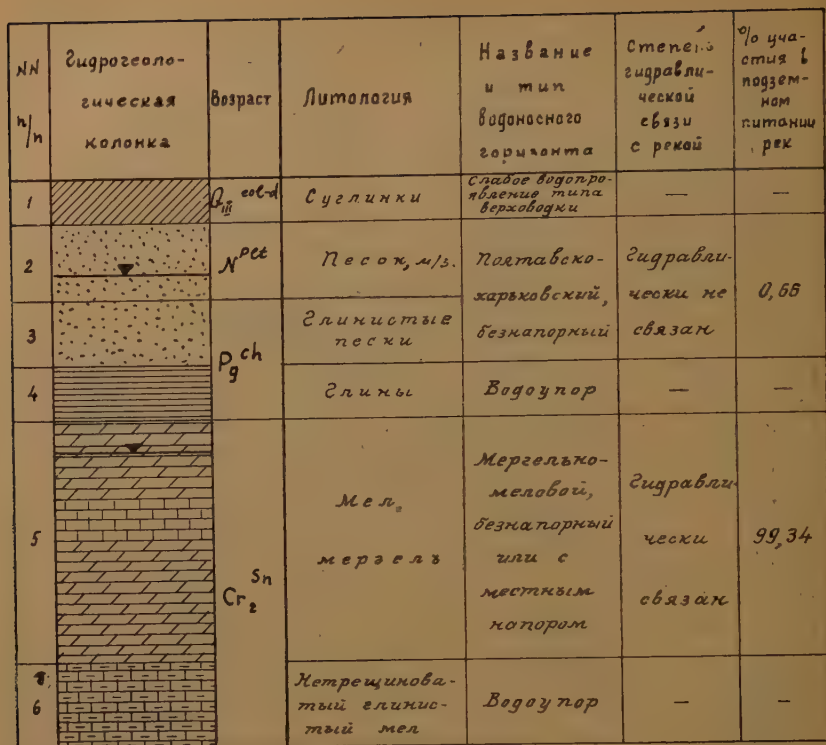 NN
п/п
Гидрогеоло-
гическая
колонка
Возраст
Литология
Название
и тип
водоносного
горизонта
Степень
гидравли-
ческой
связи
с рекой
% уча-
стия в
подзем-
ном
питании
рек
1
Q III eol-d
Суглинки
Слабое водопро-
явление типа
верховодки
—
—
2
N plt
Песок, м/з.
3
Глинистые
пески
Полтавско-
харьковский,
безнапорный
Гидравли-
чески не
связан
0,66
Pg ch
4
Глины
Водоупор
—
—
5
Cr₂ Sn
Мел,
мергель
Мергельно-
меловой,
безнапорный
или с
местным
напором
Гидравли-
чески
связан
99,34
6
Нетрещинова-
тый глинис-
тый мел
Водоупор
—
—